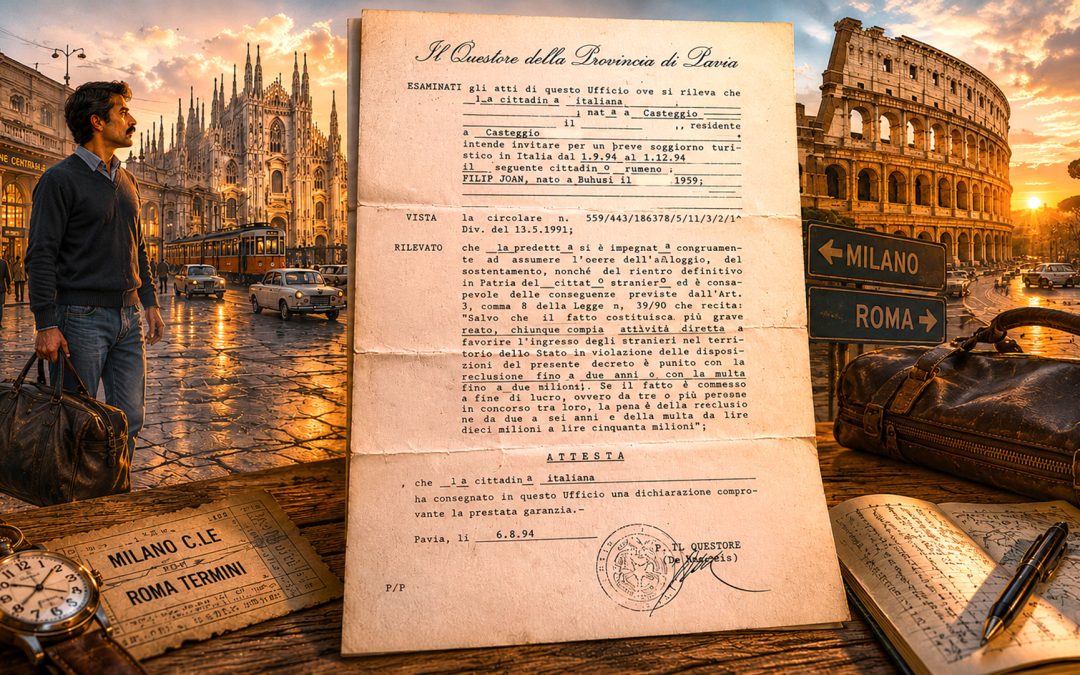 Il Questore della Provincia di Pavia
ESAMINATI gli atti di questo Ufficio ove si rileva che
l a cittadin a italiana
; nat a a Casteggio
il ,, residente
a Casteggio
intende invitare per un breve soggiorno turi-
stico in Italia dal 1.9.94 al 1.12.94
il seguente cittadin o rumeno ;
FILIP JOAN, nato a Buhusi il 1959;
VISTA la circolare n. 559/443/186378/5/11/3/2/1^
Div. del 13.5.1991;
RILEVATO che la predett a si è impegnat a congruamen-
te ad assumere l'oere dell'alloggio, del
sostentamento, nonché del rientro definitivo
in Patria del cittat o stranier o ed è con-
sapevole delle conseguenze previste dall'Art.
3, comma 8 della Legge n. 39/90 che recita:
"Salvo che il fatto costituisca più grave
reato, chiunque compia attività diretta a
favorire l'ingresso degli stranieri nel terri-
torio dello Stato in violazione delle disposi-
zioni del presente decreto è punito con la
reclusione fino a due anni o con la multa
fino a due milioni. Se il fatto è commesso
a fine di lucro, ovvero da tre o più persone
in concorso tra loro, la pena è della reclusio
ne da due a sei anni e della multa da lire
dieci milioni a lire cinquanta milioni";
ATTESTA
, che l a cittadin a italiana
ha consegnato in questo Ufficio una dichiarazione compro-
vante la prestata garanzia.-
Pavia, lí 6.8.94
P. IL QUESTORE
P/P
E CENTRALE
MILANO
ROMA
MILANO C.LE
ROMA TERMINI
12
1
2
3
4
5
6
7
8
9
10
11